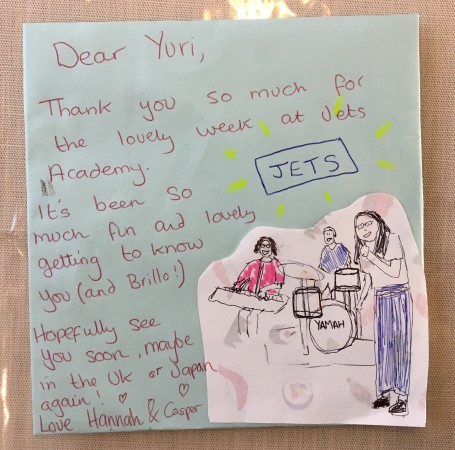 Dear Yuri,
Thank you so much for
the lovely week at Jets
Academy.
JETS
It's been so
much fun and lovely
getting to know
you (and Brillo!)
Hopefully see
you soon, maybe
in the UK or Japan
again! ♡ ♡
Love Hannah & Casper
YAMAH